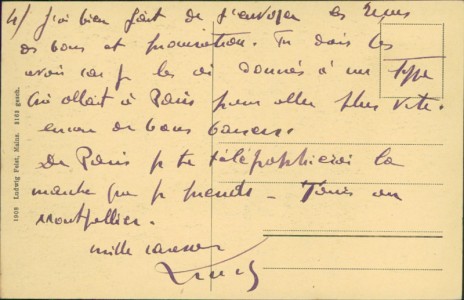 4/ J'ai bien fait de t'envoyer les
des bons et procuration. Tu dois les
avoir car je les ai donnés à un type
qui allait à Paris pour aller plus vite.
encore de bons baisers
De Paris je te télégraphierai la
marche que je prends - Tunis ou
Montpellier.
mille caresses
1909 Ludwig Feist, Mainz. 8163 gesch.